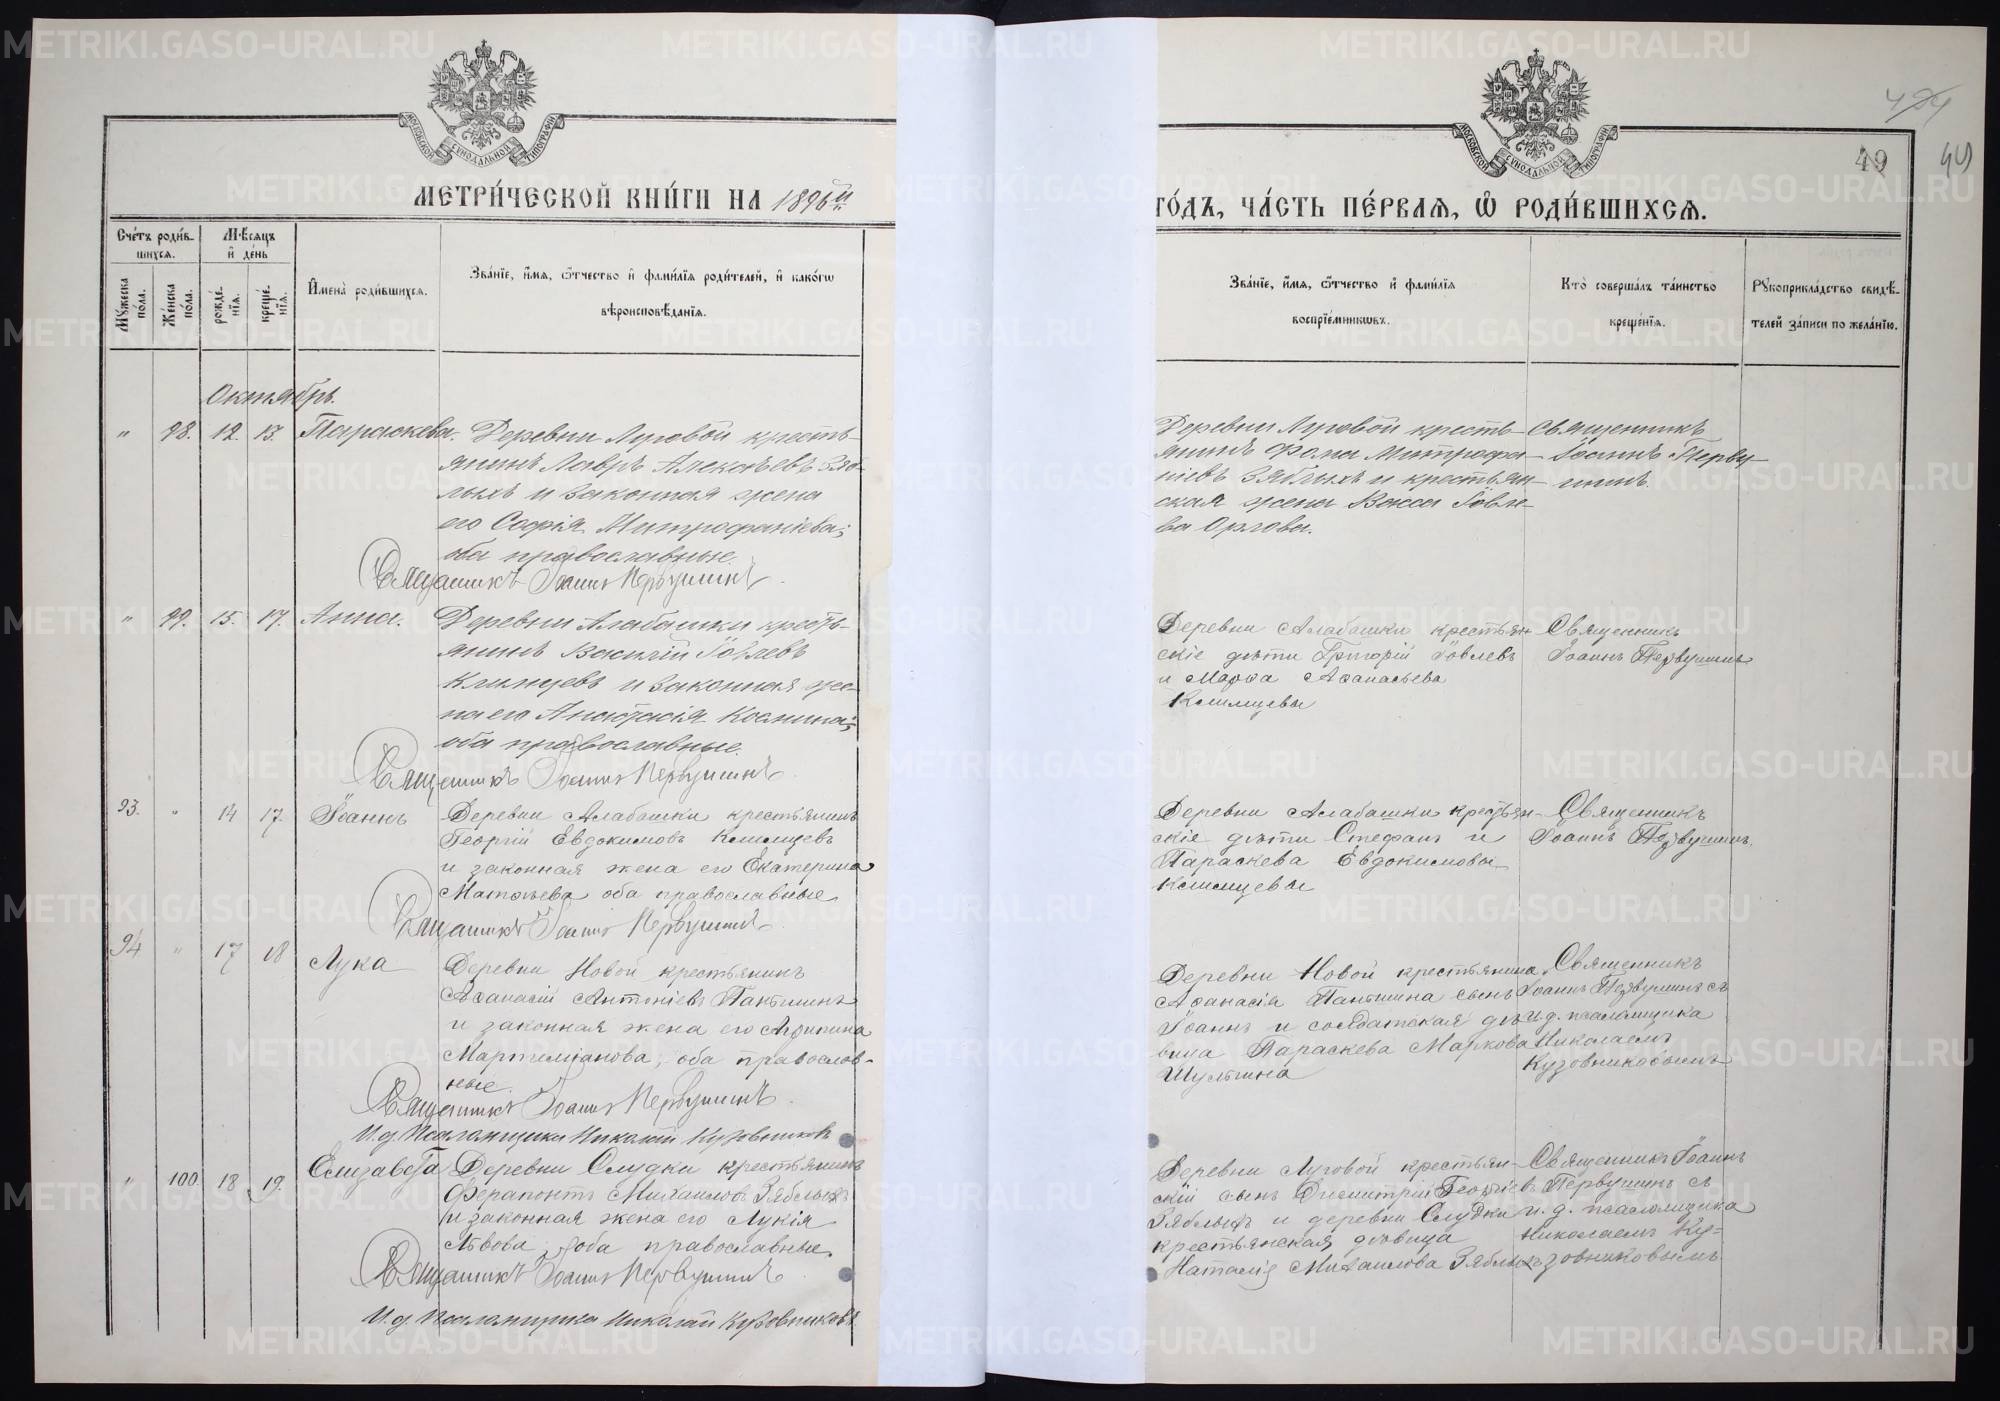 МЕТРИ́ЧЕСКОЙ КНИ́ГИ НА 1896й
ГО́ДЪ, ЧА́СТЬ ПЕ́РВАѦ, Ѡ РОДИ́ВШИХСѦ.
МОСКОВСКОЙ СѴНОДАЛЬНОЙ ТИПОГРАФІИ
МОСКОВСКОЙ СѴНОДАЛЬНОЙ ТИПОГРАФІИ
49
Сче́тъ роди́в-
шихсѧ.
Мꙋ́жеска по́ла.
Же́нска по́ла.
Мѣ́сѧцъ
и҆ де́нь
рожде́-
нїѧ.
креще́-
нїѧ.
И҆мена̀ роди́вшихсѧ.
Зва́нїе, и҆́мѧ, ѻ҆́тчество и҆ фами́лїѧ роди́телей, и҆ како́гѡ
вѣроисповѣ́данїѧ.
Зва́нїе, и҆́мѧ, ѻ҆́тчество и҆ фами́лїѧ
воспрїе́мникѡвъ.
Кто̀ соверша́лъ та́инство
креще́нїѧ.
Рꙋкоприкла́дство свидѣ́-
телей за́писи по жела́нїю.
Октябрь.
" 98. 12. 13. Параскева. Деревни Луговой кресть-
янинъ Лавръ Алексѣевъ Зяб-
лыхъ и законная жена
его Софія Митрофаніева;
оба православные.
Священникъ Іоаннъ Первушинъ.
Деревни Луговой кресть-
янинъ Фома Митрофа-
ніевъ Зяблыхъ и крестьян-
ская жена Васса Іовле-
ва Орлова.
Священникъ
Іоаннъ Перву-
шинъ.
" 99. 15. 17. Анна. Деревни Алабашки кресть-
янинъ Василій Іовлевъ
Клипцевъ и законная же-
на его Анастасія Космина;
оба православные.
Священникъ Іоаннъ Первушинъ.
Деревни Алабашки крестьян-
скіе дѣти Григорій Іовлевъ
и Марѳа Аѳанасьева
Священникъ
Іоаннъ Первушинъ
93. " 14 17. Іоаннъ Деревни Алабашки крестьянинъ
Георгій Евдокимовъ
и законная жена его Екатерина
Матѳѣева оба православные
Священникъ Іоаннъ Первушинъ.
Деревни Алабашки крестьян-
скіе дѣти Стефанъ и
Параскева Евдокимовы
Священникъ
Іоаннъ Первушинъ.
94 " 17 18 Лука Деревни Новой крестьянинъ
Аѳанасій Антоніевъ Пантюшинъ
и законная жена его Агрипина
Мартиміанова, оба православ-
ные.
Священникъ Іоаннъ Первушинъ.
И.д. Псаломщика Николай Кузовниковъ
Деревни Новой крестьянина
Аѳанасія сынъ
Іоаннъ и солдатская дѣ-
вица Параскева Маркова
Шульгина
Священникъ
Іоаннъ Первушинъ съ
и.д. псаломщика
Николаемъ
Кузовниковымъ
" 100. 18 19. Елизавета Деревни Слудки крестьянинъ
Ферапонтъ Михаиловъ Зяблыхъ
и законная жена его Лукія
Львова, оба православные.
Священникъ Іоаннъ Первушинъ
И.д. Псаломщика Николай Кузовниковъ.
Деревни Луговой крестьян-
скій сынъ Димитрій Георгіевъ
Зяблыхъ и деревни Слудки
крестьянская дѣвица
Наталія Михаилова Зяблыхъ
Священникъ Іоаннъ
Первушинъ съ
и. д. псаломщика
Николаемъ Ку-
зовниковымъ
METRIKI.GASO-URAL.RU